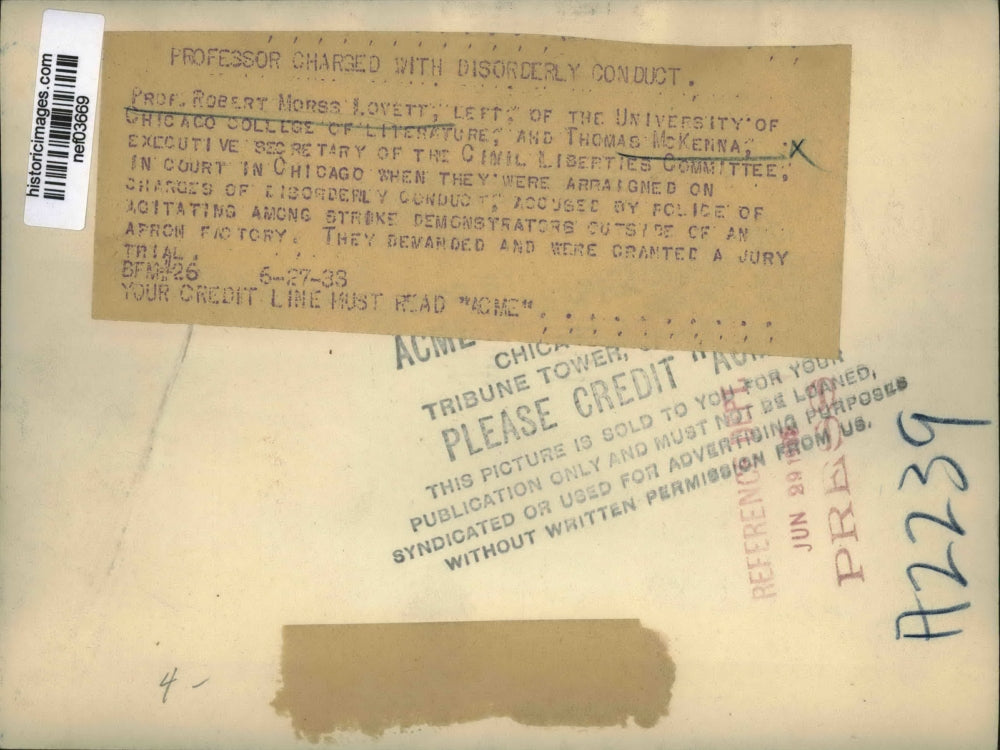 historicimages.com
nef03669
PROFESSOR CHARGED WITH DISORDERLY CONDUCT.
PROF. ROBERT MORSS LOVETT, LEFT, OF THE UNIVERSITY OF
CHICAGO COLLEGE OF LITERATURE, AND THOMAS MCKENNA, X
EXECUTIVE SECRETARY OF THE CIVIL LIBERTIES COMMITTEE,
IN COURT IN CHICAGO WHEN THEY WERE ARRAIGNED ON
CHARGES OF DISORDERLY CONDUCT, ACCUSED BY POLICE OF
AGITATING AMONG STRIKE DEMONSTRATORS OUTSIDE OF AN
APRON FACTORY. THEY DEMANDED AND WERE GRANTED A JURY
TRIAL.
BFM#26 6-27-33
YOUR CREDIT LINE MUST READ "ACME"
ACME
TRIBUNE TOWER,
PLEASE CREDIT
THIS PICTURE IS SOLD TO YOU FOR YOUR
PUBLICATION ONLY AND MUST NOT BE LOANED,
SYNDICATED OR USED FOR ADVERTISING PURPOSES
WITHOUT WRITTEN PERMISSION FROM US.
REFERENCE
JUN 29
PRESS
A2239
4 -